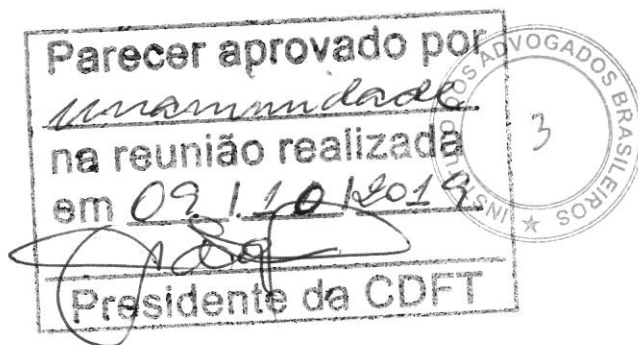 Parecer aprovado por
unanimidade
na reunião realizada
em 09/10/2019
Presidente da CDFT
INSTITUTO DOS ADVOGADOS BRASILEIROS
3